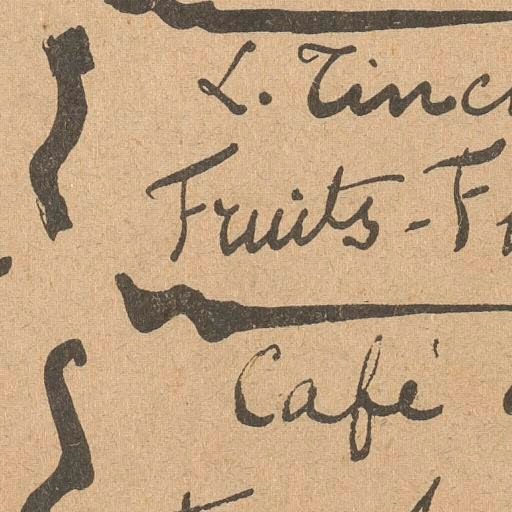 L. Tinc
Fruits - F
Café